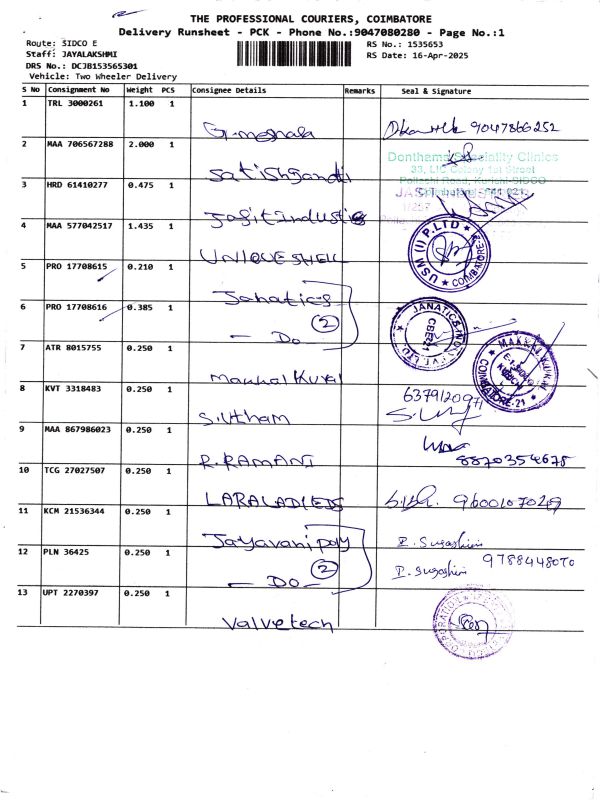 THE PROFESSIONAL COURIERS, COIMBATORE
Delivery Runsheet - PCK - Phone No.:9047080280 - Page No.:1
Route: SIDCO E
Staff: JAYALAKSHMI
DRS No.: DCJB153565301
Vehicle: Two Wheeler Delivery
RS No.: 1535653
RS Date: 16-Apr-2025
S No Consignment No Weight PCS Consignee Details Remarks Seal & Signature
1 TRL 3000261 1.100 1
G. meghala 9047866252
2 MAA 706567288 2.000 1
Satishgandhi
Donthems Speciality Clinics
33, LIC Colony 1st Street
3 HRD 61410277 0.475 1
Jasit Industries
4 MAA 577042517 1.435 1
UNIQUE SHELL
USM (I) P.LTD
COIMBATORE
5 PRO 17708615 0.210 1
Janatics
6 PRO 17708616 0.385 1
(2)
— Do —
JANATICS
CBE-21
7 ATR 8015755 0.250 1
Makkal Kural
MAKKAL KURAL
COIMBATORE-21
8 KVT 3318483 0.250 1
S. Utham
6379120971
9 MAA 867986023 0.250 1
R. RAMANI 8870354678
10 TCG 27027507 0.250 1
LARALADIES 9600107029
11 KCM 21536344 0.250 1
Jayavani poy P. Sugashini
12 PLN 36425 0.250 1
(2)
— Do — P. Sugashini 9788448070
13 UPT 2270397 0.250 1
Valvetech